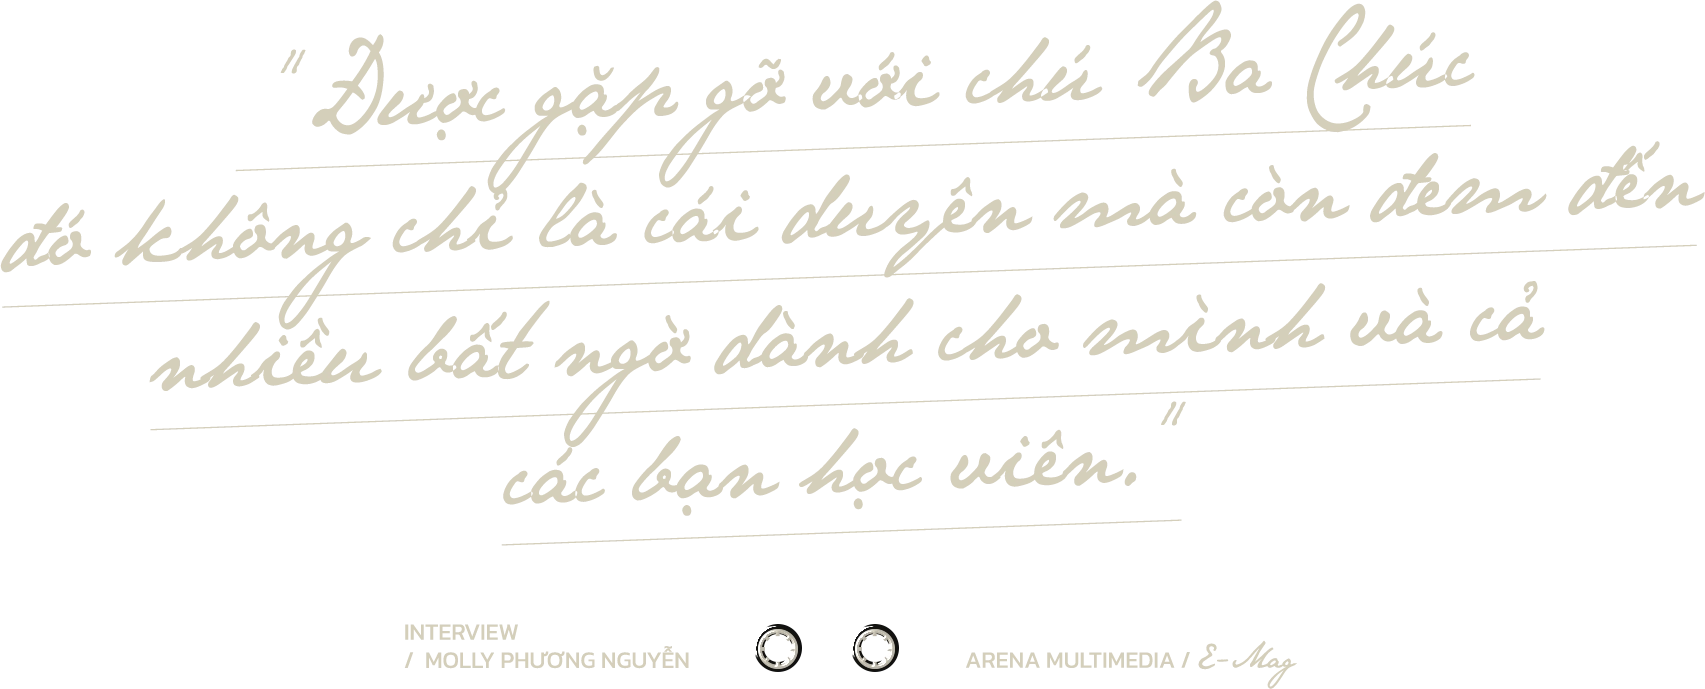 "Được gặp gỡ với chú Ba Chúc
đó không chỉ là cái duyên mà còn đem đến
nhiều bất ngờ dành cho mình và cả
các bạn học viên."
INTERVIEW
/ MOLLY PHƯƠNG NGUYỄN
ARENA MULTIMEDIA / E-Mag